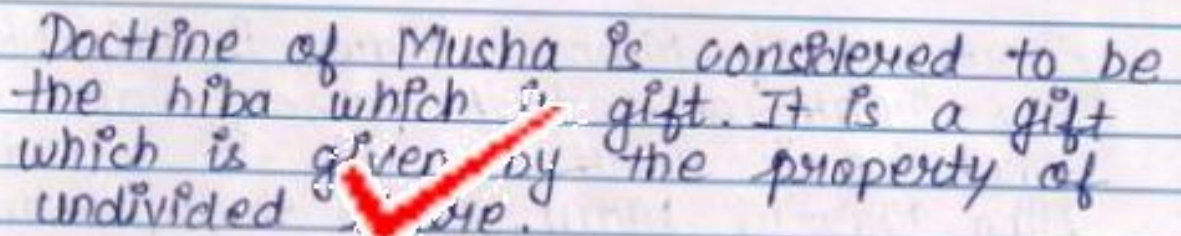 Doctrine of Musha is considered to be
the hiba which is gift. It is a gift
which is given by the property of
undivided